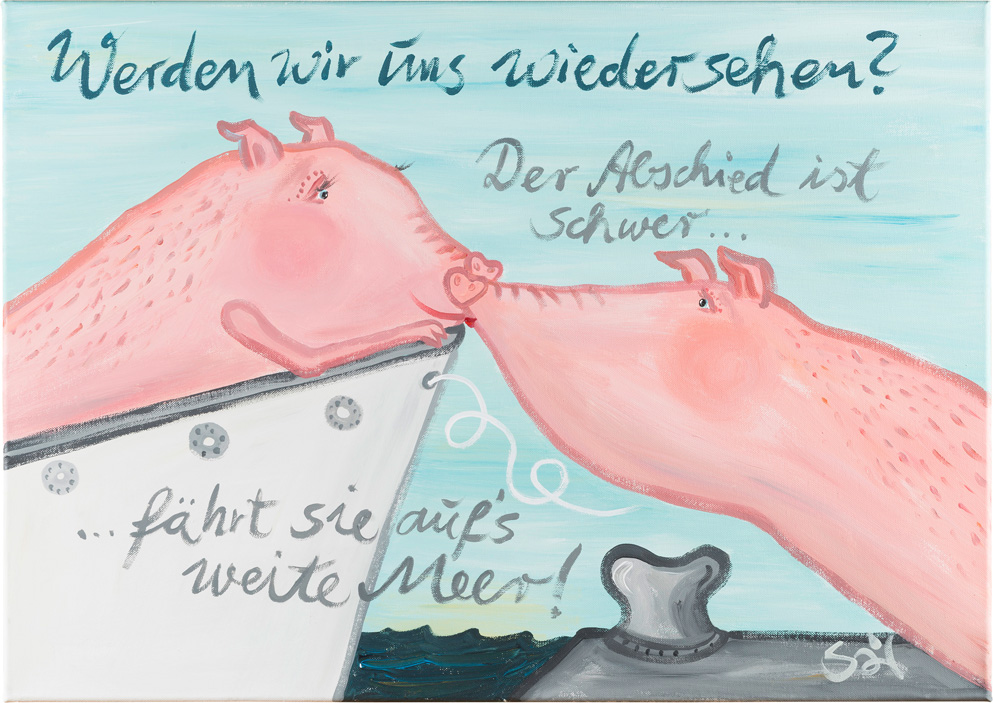 Werden wir uns wiedersehen?
Der Abschied ist
schwer...
...fährt sie auf's
weite Meer!